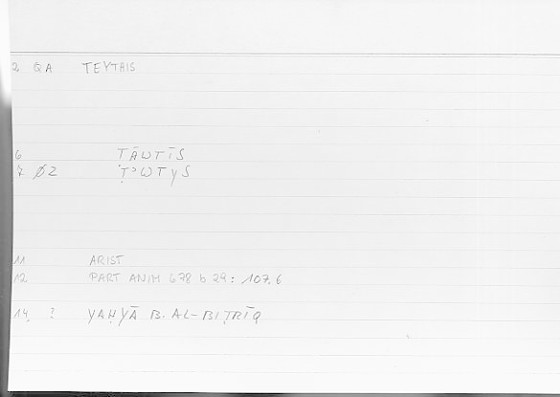 2 QA TEYTHIS
6 TĀWTĪS
7 Ø2 ṬʾWTYS
11 ARIST
12 PART ANIM 678 b 29: 107.6
14 ? YAḤYĀ B. AL-BIṬRĪQ